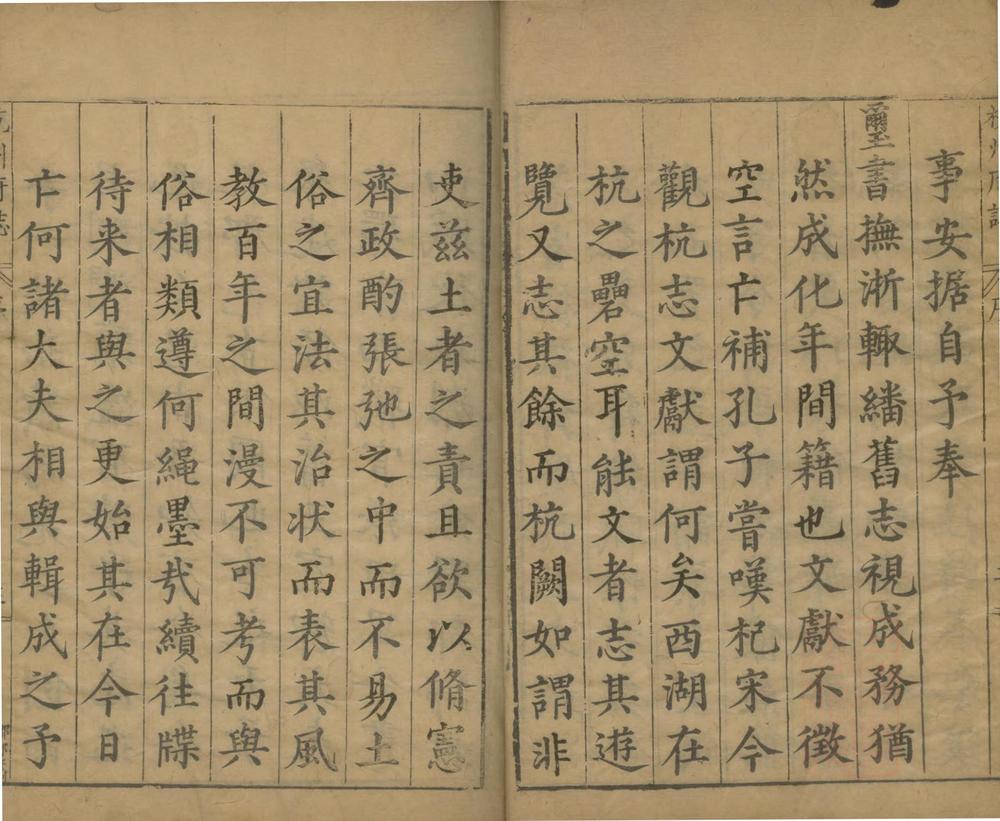 事安据自予奉
璽書撫浙輙繙舊志視成務猶
然成化年間籍也文獻不徵
空言亡補孔子嘗嘆杞宋今
觀杭志文獻謂何矣西湖在
杭之罍空耳能文者志其遊
覽又志其餘而杭闕如謂非
吏茲土者之責且欲以脩憲
齊政酌張弛之中而不易土
俗之宜法其治狀而表其風
教百年之間漫不可考而與
俗相類遵何繩墨㢤續往牒
待来者與之更始其在今日
亡何諸大夫相與輯成之予